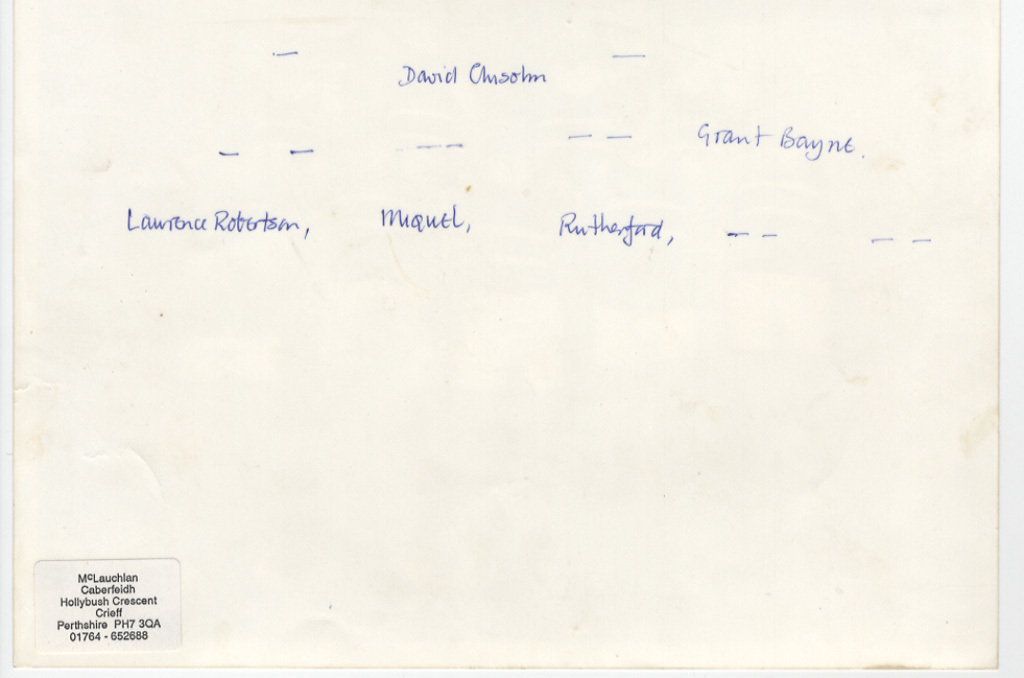 — David Chisolm —
— — — — — — Grant Bayne.
Lawrence Robertson, Miquel, Rutherford, — — — —
McLauchlan
Caberfeidh
Hollybush Crescent
Crieff
Perthshire PH7 3QA
01764 - 652688